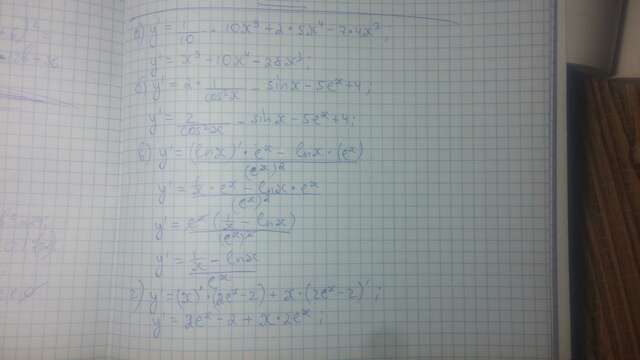 а) y' = 1/10 · 10x⁹ + 2 · 5x⁴ - 7 · 4x³;
y' = x⁹ + 10x⁴ - 28x³;
б) y' = 2 · 1/cos²x - sinx - 5eˣ + 4;
y' = 2/cos²x - sinx - 5eˣ + 4;
в) y' = ((lnx)' · eˣ - lnx · (eˣ))/(eˣ)²
y' = (1/x · eˣ - lnx · eˣ)/(eˣ)²
y' = (eˣ (1/x - lnx))/(eˣ)²
y' = (1/x - lnx)/eˣ
г) y' = (x)' · (2eˣ - 2) + x · (2eˣ - 2)';
y' = 2eˣ - 2 + x · 2eˣ;